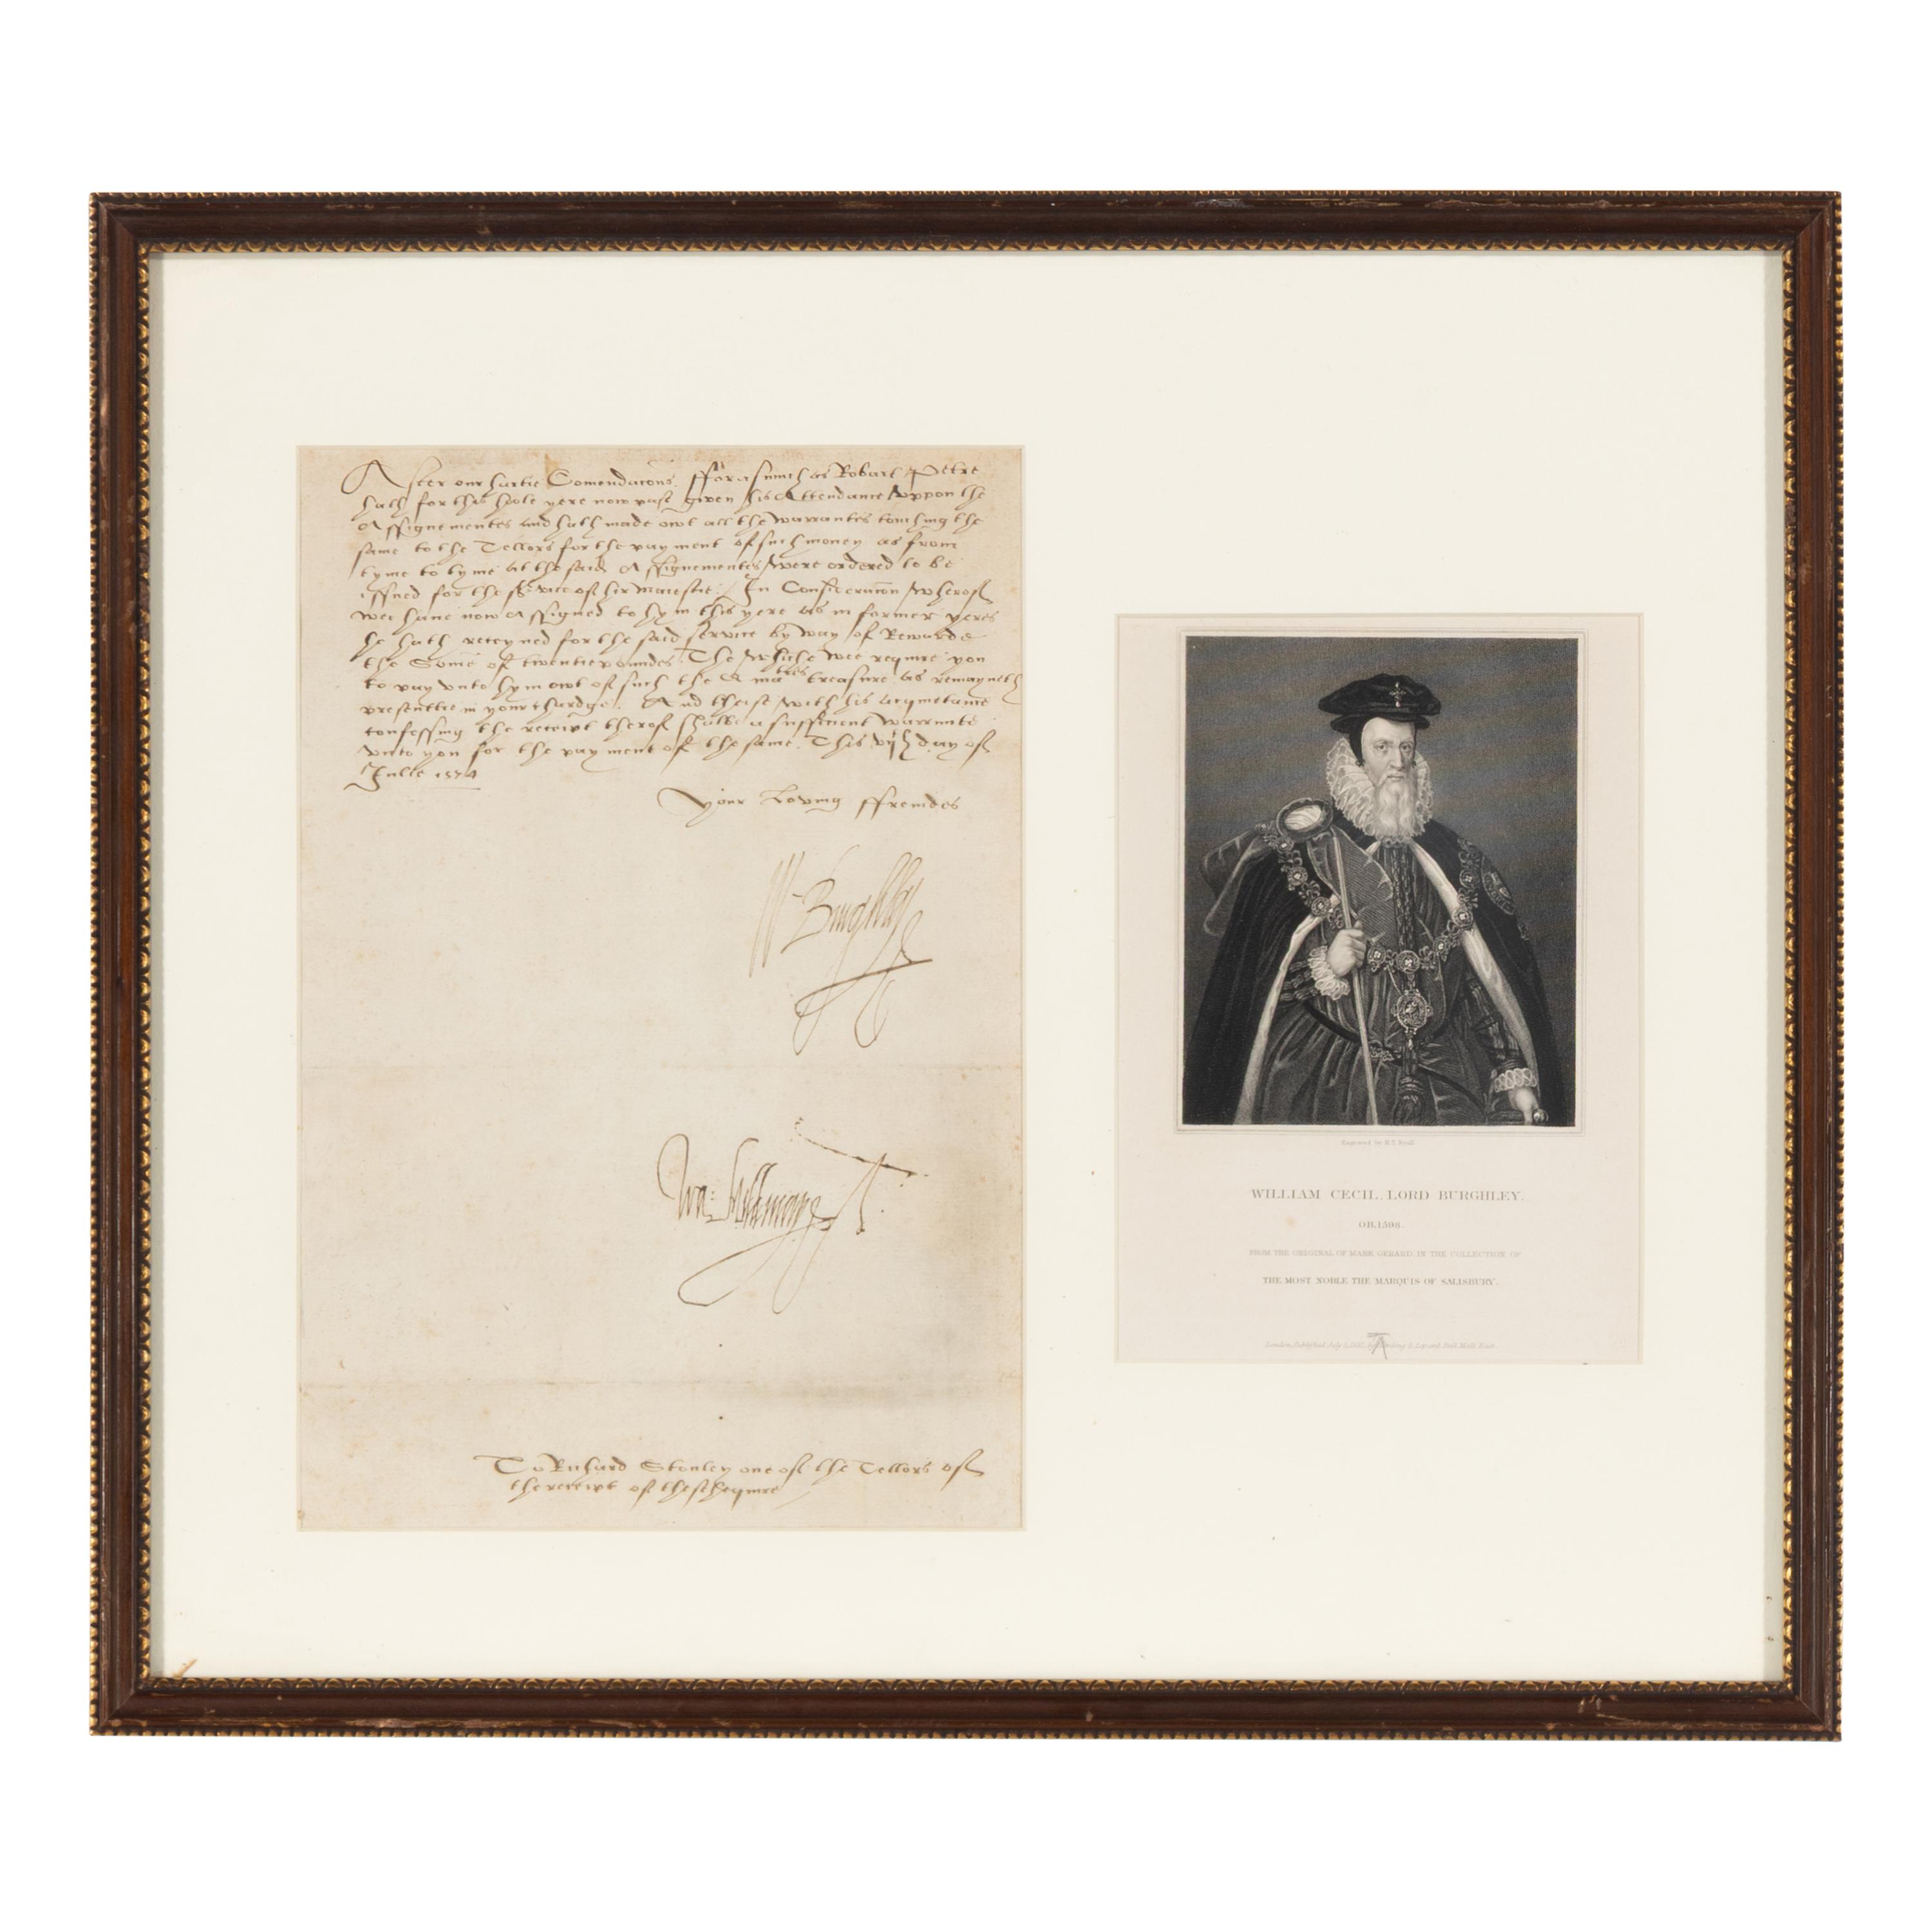 After our hartie Comendacons. fforasmuch as Robart Petre
hath for this hole yere now past given his Attendance uppon the
Assignementes and hath made owt all the warrantes touching the
same to the Tellors for the payment of such money as from
tyme to tyme at the said Assignementes were ordered to be
issued for the service of hir Maiestie. In Consideracion wherof
wee have now Assigned to hym this yere as in former yeres
he hath receyned for the said service by way of Rewarde
the Some of twentie poundes. The whiche wee require you
to pay unto hym owt of such the Q. matres treasure as remayneth
presentlie in your chardge. And theise with his acquetance
confessing the receipt therof shalbe a sufficient warrante
unto you for the payment of the same. This vijth day of
Julie 1574
Your Loving ffreindes
W Burghley
Wa: Mildmay
To Richard Stonley one of the Tellors of
the receipt of theschequire
Engraved by H.T. Ryall
WILLIAM CECIL, LORD BURGHLEY.
OB. 1598.
FROM THE ORIGINAL OF MARK GERARD, IN THE COLLECTION OF
THE MOST NOBLE THE MARQUIS OF SALISBURY.
London, Published July 1, by Harding & Lepard, Pall Mall East.